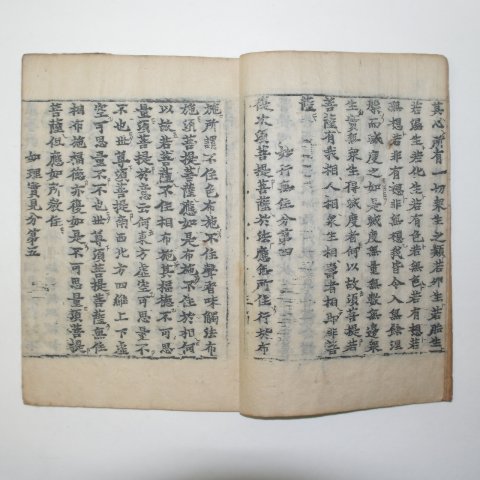 其心所有一切衆生之類若卵生若胎生
若濕生若化生若有色若無色若有想若
無想若非有想非無想我皆令入無餘涅
槃而滅度之如是滅度無量無數無邊衆
生實無衆生得滅度者何以故須菩提若
菩薩有我相人相衆生相壽者相卽非菩
薩
妙行無住分第四
復次須菩提菩薩於法應無所住行於布
施所謂不住色布施不住聲香味觸法布
施須菩提菩薩應如是布施不住於相何
以故若菩薩不住相布施其福德不可思
量須菩提於意云何東方虛空可思量不
不也世尊須菩提南西北方四維上下虛
空可思量不不也世尊須菩提菩薩無住
相布施福德亦復如是不可思量須菩提
菩薩但應如所敎住
如理實見分第五